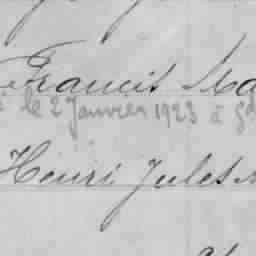 Francis Ma
le 2 Janvier 1923 à
Henri Jules